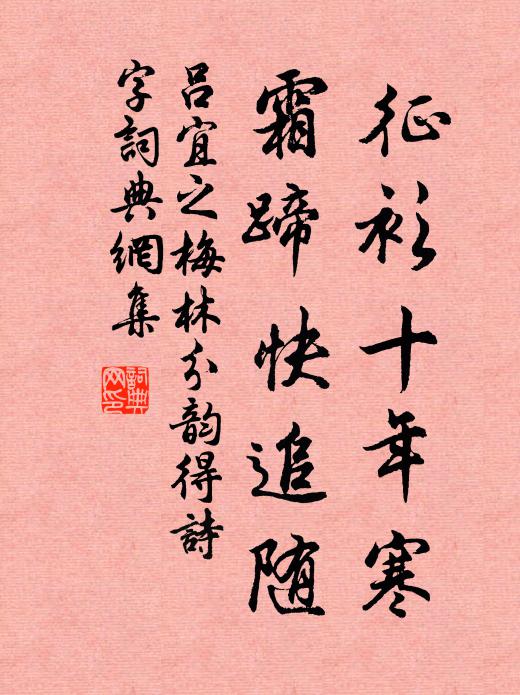 征衫十年寒
霜蹄快追随
吕宜之梅林分韵得詩
字詞典網集
詞典
网印